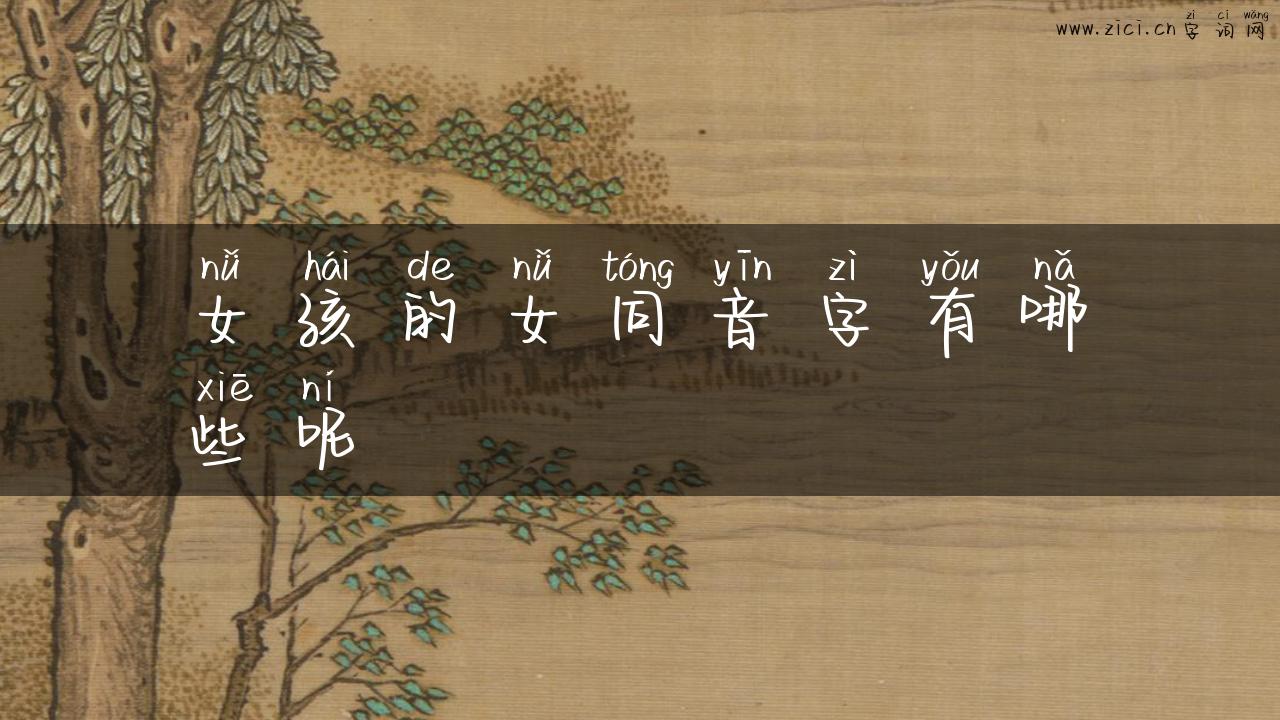 zì cí wǎng
www.zici.cn 字词网
nǚ hái de nǚ tóng yīn zì yǒu nǎ
女孩的女同音字有哪
xiē ní
些呢